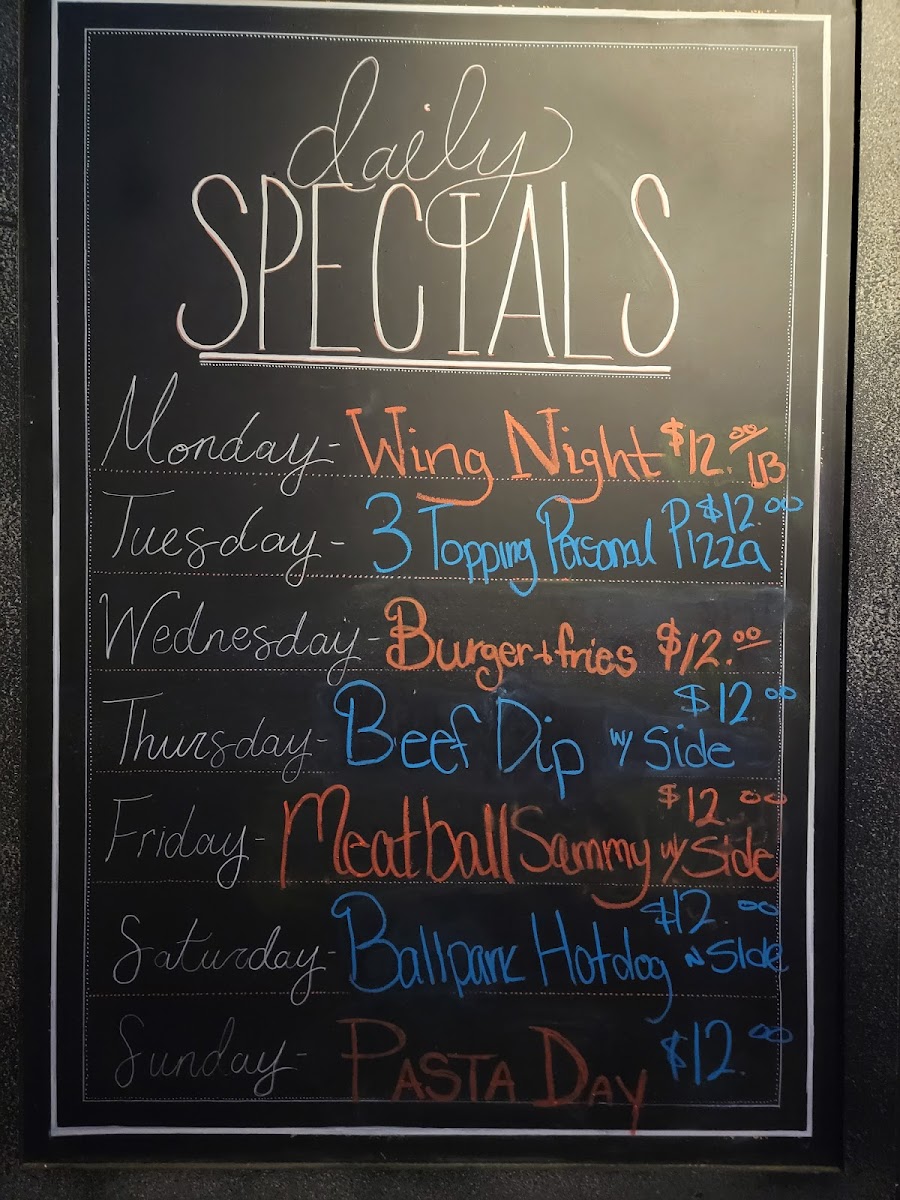 daily
SPECIALS
Monday - Wing Night $12.00/LB
Tuesday - 3 Topping Personal Pizza $12.00
Wednesday - Burger + fries $12.00
Thursday - Beef Dip w/ Side $12.00
Friday - Meatball Sammy w/ Side $12.00
Saturday - Ballpark Hotdog n Side $12.00
Sunday - PASTA DAY $12.00